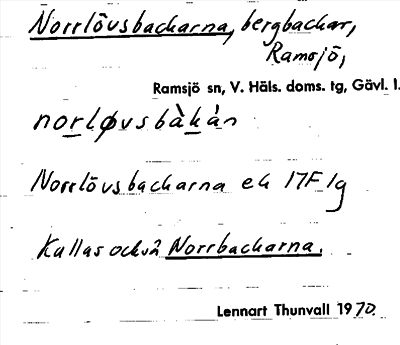 Norrlövsbackarna, bergbackar,
Ramsjö,
Ramsjö sn, V. Häls. doms. tg, Gävl. l.
norløvsbàkàn
Norrlövsbackarna ek 17F 1g
Kallas också Norrbackarna.
Lennart Thunvall 1970.